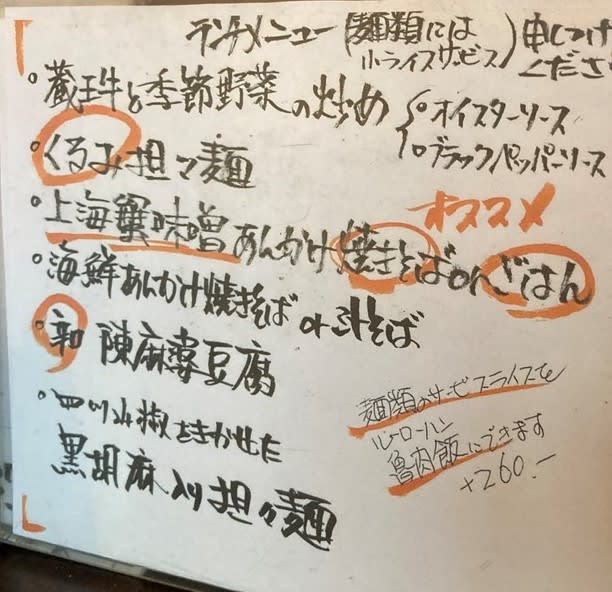 ランチメニュー (麺類には小ライスサービス) 申しつけください
・蔵王牛と季節野菜の炒め {・オイスターソース
・ブラックペッパーソース
・くるみ担々麺
オススメ
・上海蟹味噌あんかけ焼きそばorごはん
・海鮮あんかけ焼きそば or 汁そば
・辛 陳麻婆豆腐
・四川山椒をきかせた
黒胡麻入り担々麺
麺類のサービスライスを
ルーローハン
魯肉飯にできます
+260.-